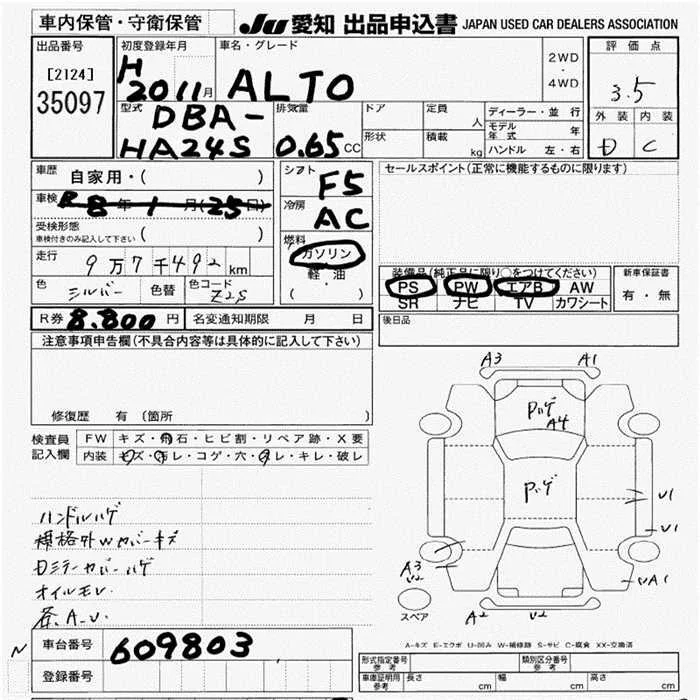 車内保管・守衛保管 JU 愛知 出品申込書 JAPAN USED CAR DEALERS ASSOCIATION
出品番号 [2124] 35097
初度登録年月 H 2011月
車名・グレード ALTO
2WD・4WD
評価点 3.5
外装 D 内装 C
型式 DBA-HA24S
排気量 0.65CC
ドア 形状 定員 人 積載 kg
ディーラー・並行
モデル年式 年
ハンドル 左・右
車歴 自家用・( )
車検 R8年1月(25日)
受検形態 車検付きのみ記入して下さい ( )
走行 9万7千492km
色 シルバー 色替 色コード Z2S
シフト F5
冷房 AC
燃料 ガソリン・軽油 ( )
セールスポイント(正常に機能するものに限ります)
装備品(純正品に限り○をつけてください)
PS PW エアB AW
SR ナビ TV カワシート
新車保証書 有・無
R券 8.800円 名変通知期限 月 日
後日品
注意事項申告欄(不具合内容等は具体的に記入して下さい)
修復歴 有 (箇所 )
検査員記入欄
FW キズ・飛石・ヒビ割・リペア跡・X要
内装 キズ・汚レ・コゲ・穴・スレ・キレ・破レ
ハンドルハゲ
規格外Wカバーキズ
オイルモレ
A3 A1
Pハゲ
A4
Pハゲ
U1
U1
A3
U2
UA1
スペア
A2 U2
A-キズ E-エクボ U-凹み W-補修跡 S-サビ C-腐食 XX-交換済
N
車台番号 609803
登録番号
形式指定番号 参考 類別区分番号 参考
車庫証明用 参考 長さ cm 幅 cm 高さ cm